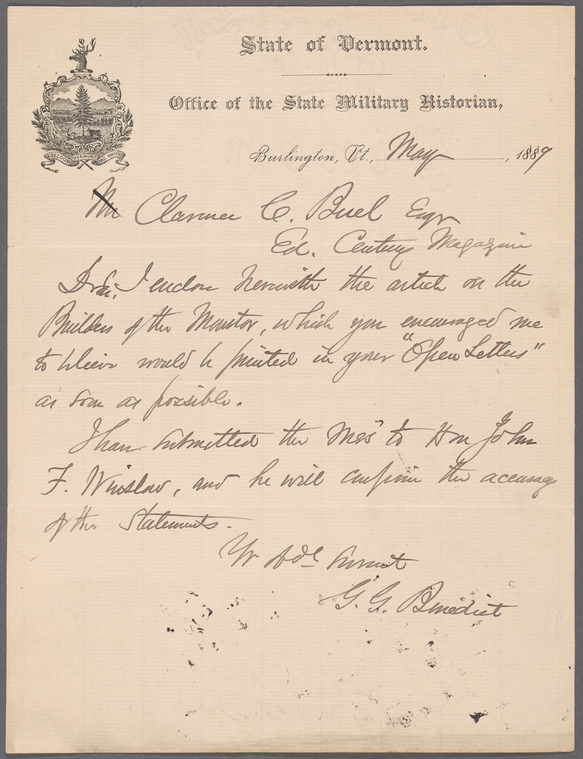 State of Vermont.
Office of the State Military Historian,
Burlington, Vt., May 1889
Clarence C. Buel Esqr
Ed. Century Magazine
I enclose herewith the article on the
Builders of the Monitor, which you encouraged me
to believe would be printed in your "Open Letters"
as soon as possible.
I have submitted the to Hon John
F. Winslow, and he will confirm the accuracy
of the statements.
Yr Obt servt
G. G. Benedict